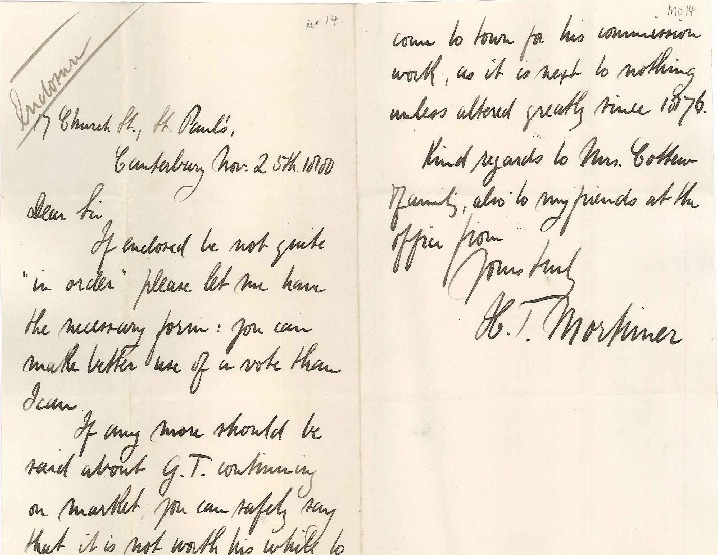 Mo 14
Enclosure
7 Church St., St. Paul's,
Canterbury Nov. 25th 1880
Dear Sir
If enclosed be not quite
"in order" please let me have
the necessary form: you can
make better use of a vote than
I can
If any more should be
said about G.T. continuing
on market, you can safely say
that it is not worth his while to
Mo 14
come to town for his commission
work, as it is next to nothing
unless altered greatly since 1876.
Kind regards to Mrs.
family, also to my friends at the
office from
Yours truly
H. T. Mortimer